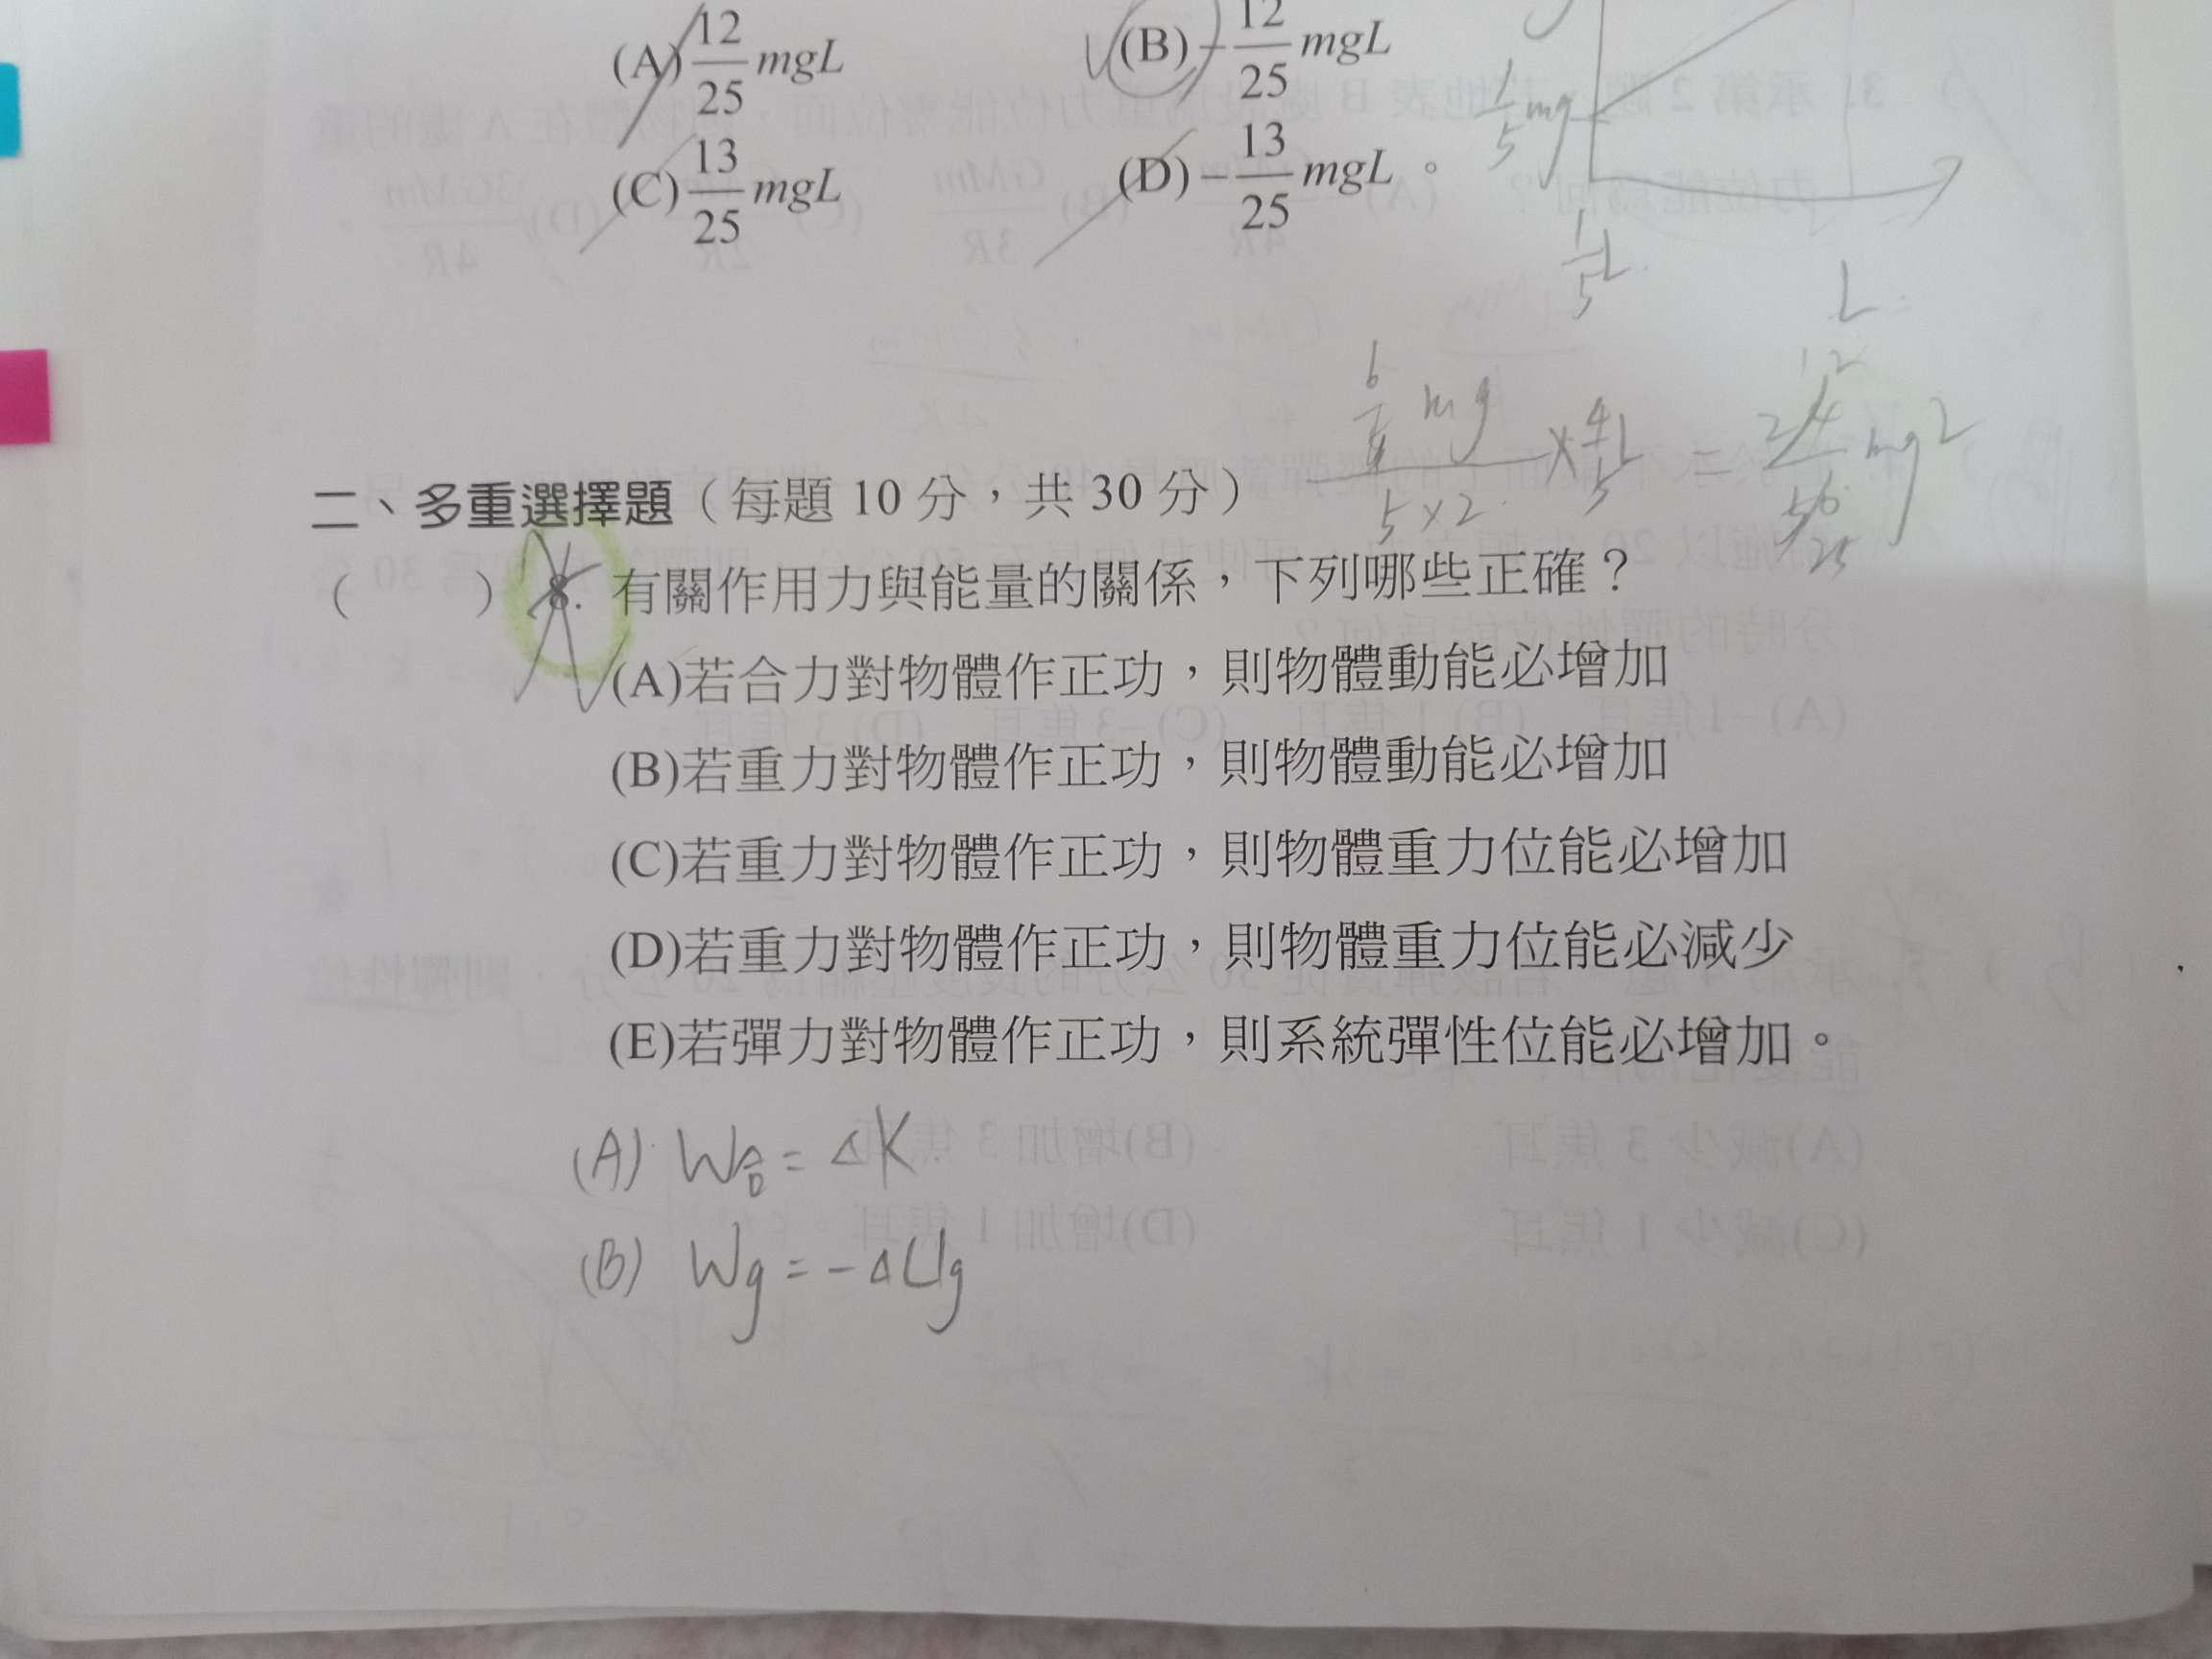 (A) 12/25 mgL (B) −12/25 mgL
(C) 13/25 mgL (D) −13/25 mgL。
1/5 mg
1/5 L
L
二、多重選擇題（每題 10 分，共 30 分）
（ ） 8. 有關作用力與能量的關係，下列哪些正確？
(A)若合力對物體作正功，則物體動能必增加
(B)若重力對物體作正功，則物體動能必增加
(C)若重力對物體作正功，則物體重力位能必增加
(D)若重力對物體作正功，則物體重力位能必減少
(E)若彈力對物體作正功，則系統彈性位能必增加。
(A) W合 = ΔK
(B) Wg = −ΔUg